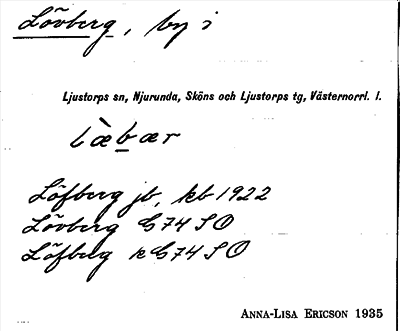 Lövberg, by i
Ljustorps sn, Njurunda, Sköns och Ljustorps tg, Västernorrl. l.
l&#x00E6;̀bær
Löfberg jb, kb 1922
Lövberg G74SO
Löfberg k G74SO
ANNA-LISA ERICSON 1935